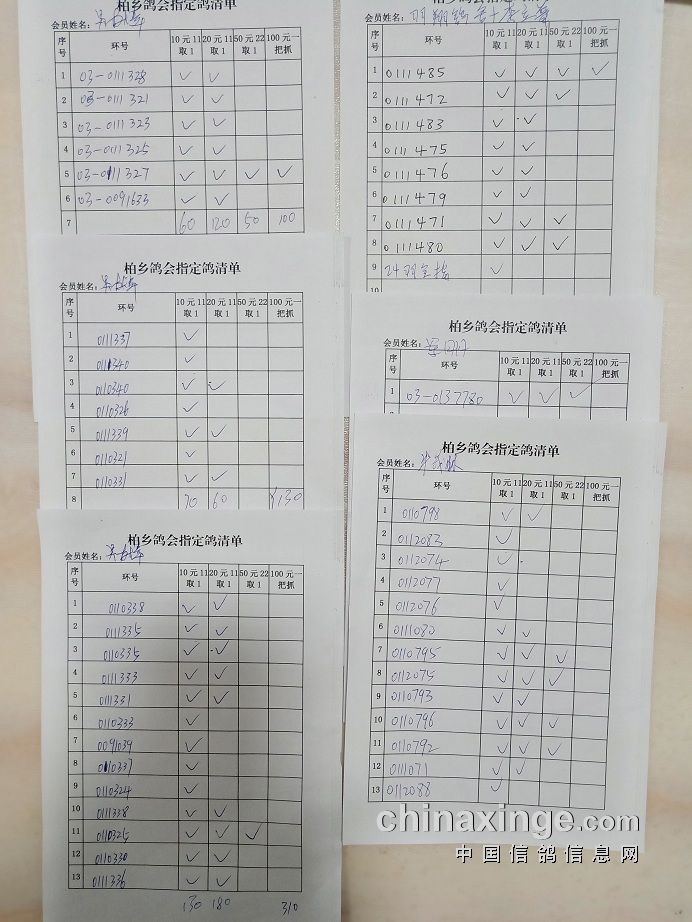 柏乡鸽会指定鸽清单
会员姓名：
序号 环号 10元11取1 20元11取1 50元22取1 100元一把抓
1 03-0111328 ✓ ✓
2 03-0111321 ✓ ✓
3 03-0111323 ✓ ✓
4 03-0111325 ✓ ✓
5 03-0111327 ✓ ✓ ✓ ✓
6 03-0091633 ✓ ✓
7 60 120 50 100
柏乡鸽会指定鸽清单
会员姓名：
序号 环号 10元11取1 20元11取1 50元22取1 100元一把抓
1 0111337 ✓
2 0110340 ✓
3 0110340 ✓ ✓
4 0110326 ✓
5 0111339 ✓ ✓
6 0110321 ✓
7 0110331 ✓ ✓
8 70 60 ¥130
柏乡鸽会指定鸽清单
会员姓名：
序号 环号 10元11取1 20元11取1 50元22取1 100元一把抓
1 0110338 ✓ ✓
2 0111335 ✓ ✓
3 0110335 ✓ ✓
4 0111333 ✓ ✓
5 0111331 ✓ ✓
6 0110333 ✓
7 0091039 ✓
8 0110337 ✓
9 0110324 ✓
10 0111338 ✓ ✓
11 0110325 ✓ ✓ ✓
12 0110330 ✓ ✓
13 0111336 ✓ ✓
130 180 310
会员姓名：翔鸽舍
序号 环号 10元11取1 20元11取1 50元22取1 100元一把抓
1 0111485 ✓ ✓ ✓ ✓
2 0111472 ✓ ✓ ✓
3 0111483 ✓ ✓
4 0111475 ✓ ✓
5 0111476 ✓ ✓
6 0111479 ✓ ✓
7 0111471 ✓ ✓ ✓
8 0111480 ✓ ✓ ✓
9 24羽全指 ✓
10
柏乡鸽会指定鸽清单
会员姓名：
序号 环号 10元11取1 20元11取1 50元22取1 100元一把抓
1 03-0137780 ✓ ✓ ✓
柏乡鸽会指定鸽清单
会员姓名：
序号 环号 10元11取1 20元11取1 50元22取1 100元一把抓
1 0110798 ✓ ✓
2 0112083 ✓
3 0112074 ✓
4 0112077 ✓
5 0112076 ✓
6 0111080 ✓ ✓
7 0110795 ✓ ✓ ✓
8 0112075 ✓ ✓ ✓
9 0110793 ✓ ✓
10 0110796 ✓ ✓ ✓
11 0110792 ✓ ✓ ✓
12 0111071 ✓ ✓
13 0112088 ✓
chinaxinge.com
中国信鸽信息网